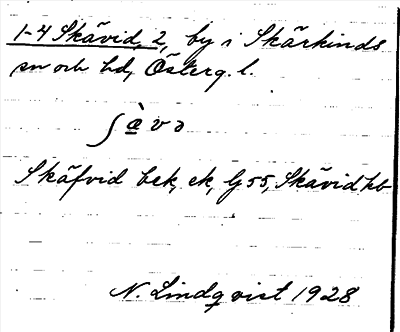 1-4 Skävid, 2, by i Skärkinds
sn och hd, Österg. l.
ʃæ̀və
Skäfvid bek, ek, G 55, Skävid hb
N. Lindqvist 1928